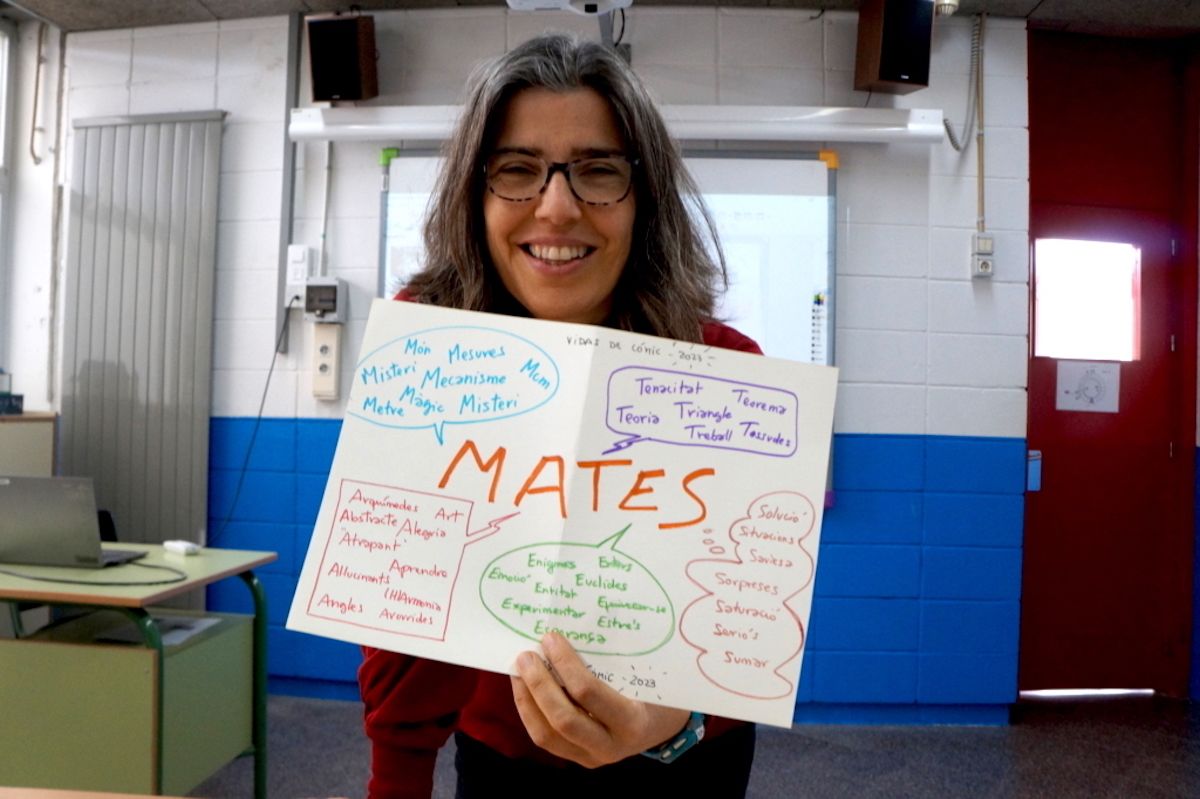 VIDAS DE CÓMIC - 2023 -
Món Mesures
Misteri Mecanisme Mcm
Màgic
Metre Misteri
Tenacitat Teorema
Teoria Triangle
Treball Tossudes
MATES
Arquímedes Art
Abstracte Alegria
"Atrapant"
Aprendre
Al·lucinants
(H)Armonia
Angles Avorrides
Enigmes Enters
Emoció Euclides
Entitat Equivocar-se
Experimentar Estrès
Esperança
Solució
Situacions
Saviesa
Sorpreses
Saturació
Seriós
Sumar
CÓMIC - 2023